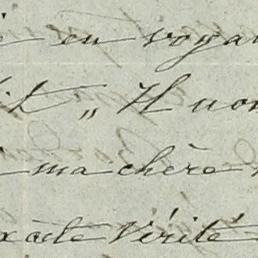 en voya
„ Il nou
ma chère
xacte Vérité